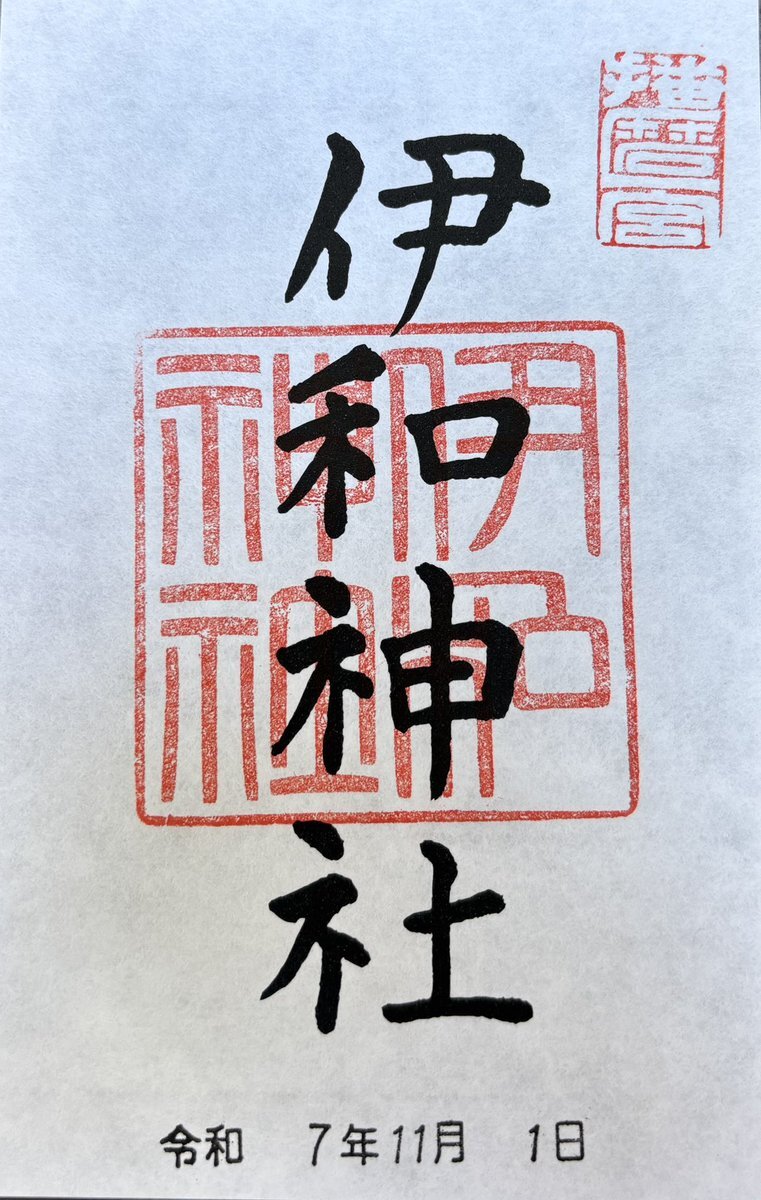 播磨一宮
伊和神社
伊和
神社
令和 7年11月 1日